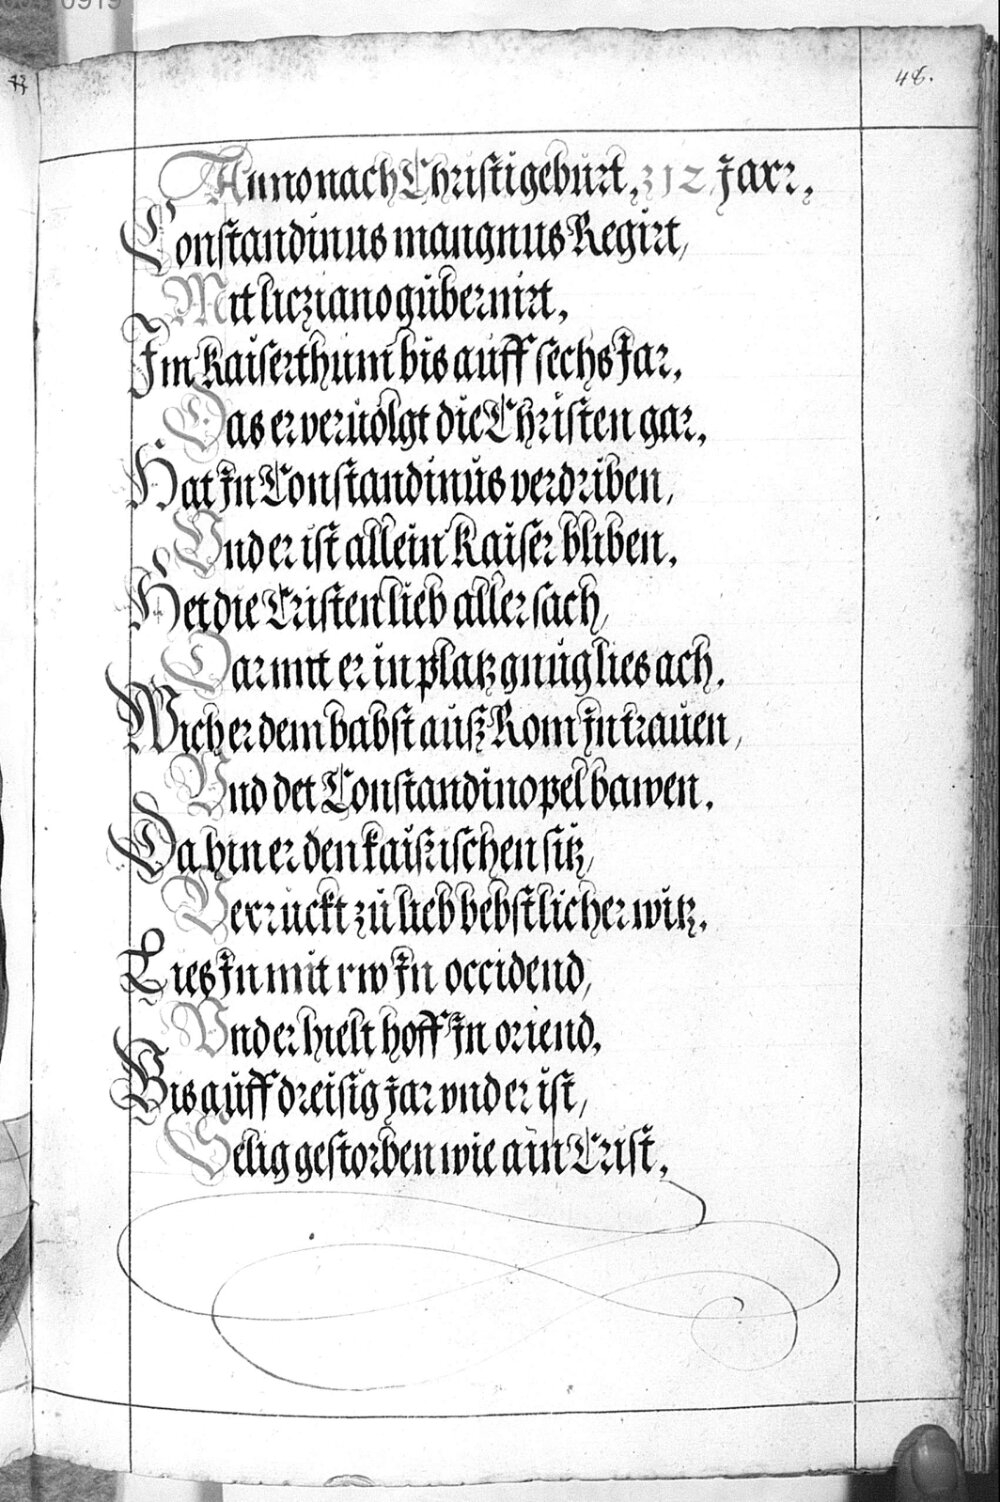 0919
48.
Anno nach Christi geburt, 312 Jarr,
Constandinus mangnus Regirt,
Mit liczianogubernirt,
Im Kaiserthum bis auff sechs Jar,
Das er veruolgt die Christen gar,
Hat In Constandinus verdriben,
Vnd er ist allein Kaiser bliben,
Het die Cristen lieb aller sach,
Dar mit er in platz gnug lies ach,
Wich er dem babst auß Rom In trauen,
Vnd det Constandinopel bawen,
Da hin er den kaißrischen sitz,
Verruckt zu lieb bebstlicher witz,
Lies In mit rw In occident,
Vnd er hielt hoff In oriend,
Bis auff dreisig Jar vnd er ist,
Selig gestorben wie ain Crist,